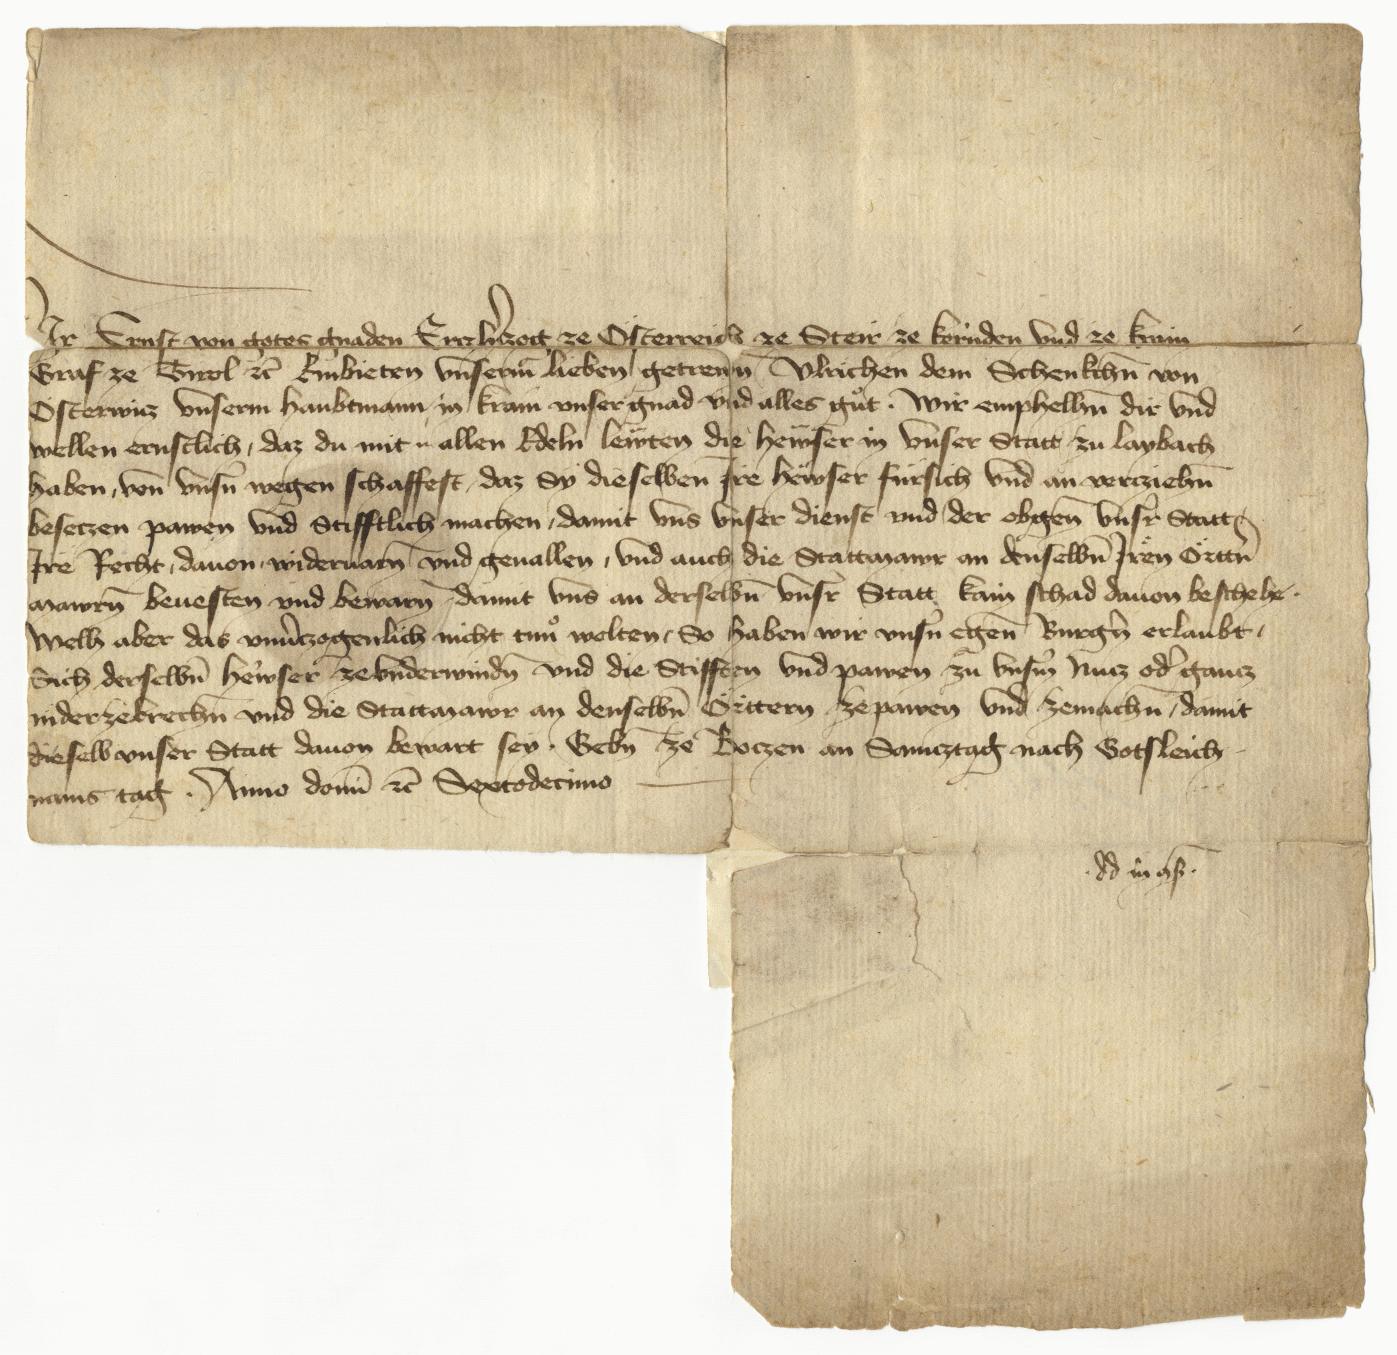 Wir Ernst von gotes gnaden Erczherzog ze Österreich ze Steir ze kernden vnd ze krain
Graf ze Tirol etc Embieten vnserm lieben getrewn Vlrichen dem Schenkchn von
Osterwicz vnserm haubtmann in krain vnser gnad vnd alles gůt. Wir emphelhn dir vnd
wellen ernstlich, daz du mit allen Edeln lewten die hewser in vnser Statt zu laybach
haben, von vnsn wegen schaffest, daz Sy dieselben Ire hewser fursich vnd an verziehn
beseczen pawen vnd Stifftlich machen, damit vns vnser dienst vnd der obgen vnsr Statt
Ire Recht, dauon, wideruarn vnd geuallen, vnd auch die Stattmawr an denselbn Iren Örttn
mawrn beuesten vnd bewarn damit vns an derselbn vnsr Statt kain schad dauon beschehe.
Welh aber das vnuerczogenlich nicht tun wolten, So haben wir vnsn egen Burgern erlaubt,
Sich derselbn hewser ze vnderwindn vnd die Stifften vnd pawen zu vnsm Nucz oder gancz
niderzebrechn vnd die Stattmawr an denselbn Örttern ze pawen vnd zemachn, damit
dieselb vnser Statt dauon bewart sey. Gebn ze Boczen an Samcztag nach Gotsleich-
nams tag. Anno domi etc Sextodecimo